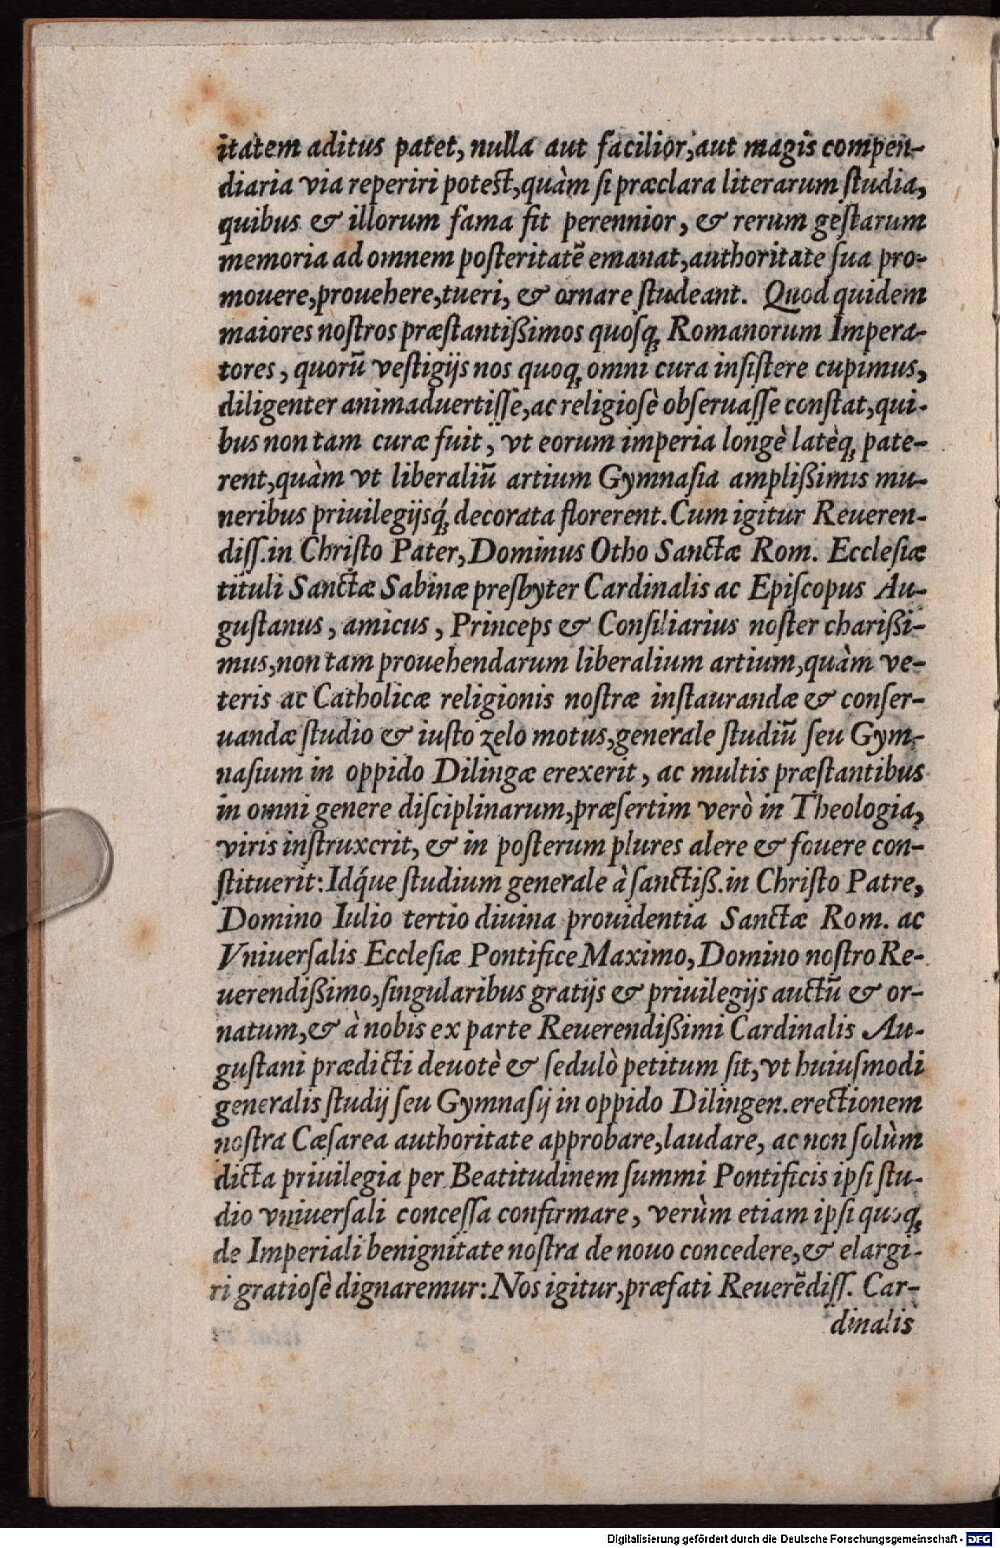 itatem aditus patet, nulla aut facilior, aut magis compen-
diaria via reperiri potest, quàm si præclara literarum studia,
quibus & illorum fama fit perennior, & rerum gestarum
memoria ad omnem posteritatē emanat, authoritate sua pro-
mouere, prouehere, tueri, & ornare studeant. Quod quidem
maiores nostros præstantißimos quosq́; Romanorum Impera-
tores, quorū vestigijs nos quoq; omni cura insistere cupimus,
diligenter animaduertisse, ac religiosè obseruasse constat, qui-
bus non tam curæ fuit, vt eorum imperia longè latèq; pate-
rent, quàm vt liberaliū artium Gymnasia amplißimis mu-
neribus priuilegijsq́; decorata florerent. Cum igitur Reueren-
diss. in Christo Pater, Dominus Otho Sanctæ Rom. Ecclesiæ
tituli Sanctæ Sabinæ presbyter Cardinalis ac Episcopus Au-
gustanus, amicus, Princeps & Consiliarius noster charißi-
mus, non tam prouehendarum liberalium artium, quàm ve-
teris ac Catholicæ religionis nostræ instaurandæ & conser-
uandæ studio & iusto zelo motus, generale studiū seu Gym-
nasium in oppido Dilingæ erexerit, ac multis præstantibus
in omni genere disciplinarum, præsertim verò in Theologia,
viris instruxerit, & in posterum plures alere & fouere con-
stituerit: Idq́ue studium generale à sanctiß. in Christo Patre,
Domino Iulio tertio diuina prouidentia Sanctæ Rom. ac
Vniuersalis Ecclesiæ Pontifice Maximo, Domino nostro Re-
uerendißimo, singularibus gratijs & priuilegijs auctū & or-
natum, & à nobis ex parte Reuerendißimi Cardinalis Au-
gustani prædicti deuotè & sedulò petitum sit, vt huiusmodi
generalis studij seu Gymnasij in oppido Dilingen. erectionem
nostra Cæsarea authoritate approbare, laudare, ac non solùm
dicta priuilegia per Beatitudinem summi Pontificis ipsi stu-
dio vniuersali concessa confirmare, verùm etiam ipsi quoq;
de Imperiali benignitate nostra de nouo concedere, & elargi-
ri gratiosè dignaremur: Nos igitur, præfati Reuerēdiss. Car-
dinalis
Digitalisierung gefördert durch die Deutsche Forschungsgemeinschaft - DFG